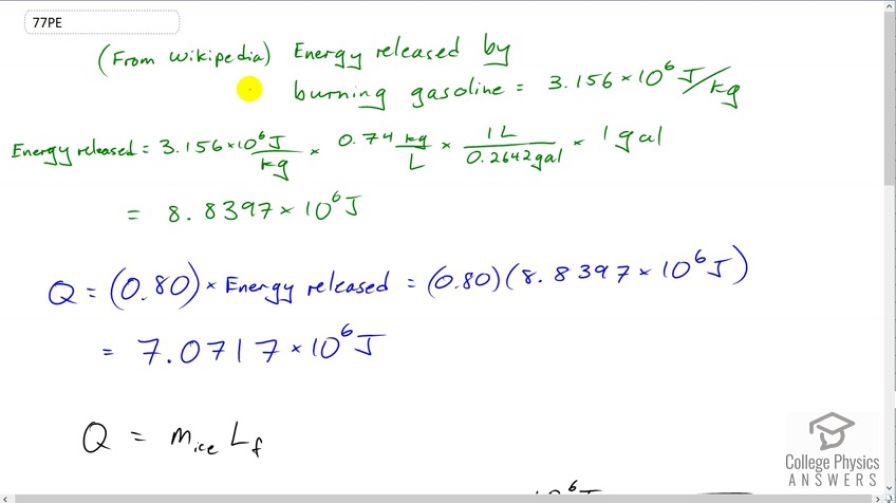 77PE
(From Wikipedia) Energy released by
burning gasoline = 3.156 × 10⁶ J/kg
Energy released = 3.156×10⁶ J/kg × 0.74 kg/L × 1L/0.2642gal × 1gal
= 8.8397×10⁶ J
Q = (0.80) × Energy released = (0.80)(8.8397×10⁶ J)
= 7.0717×10⁶ J
Q = m_ice L_f
College Physics
ANSWERS